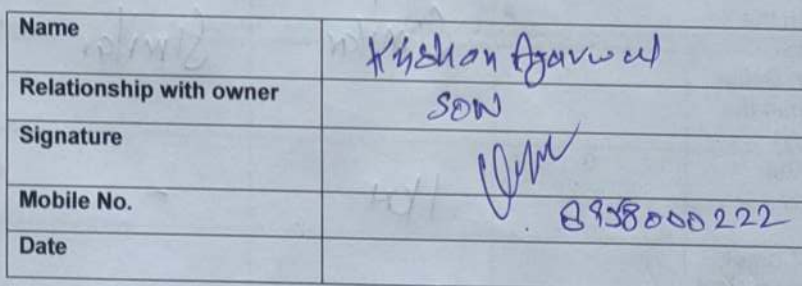 Name Kishan Agarwal
Relationship with owner SON
Signature
Mobile No. 8958000222
Date